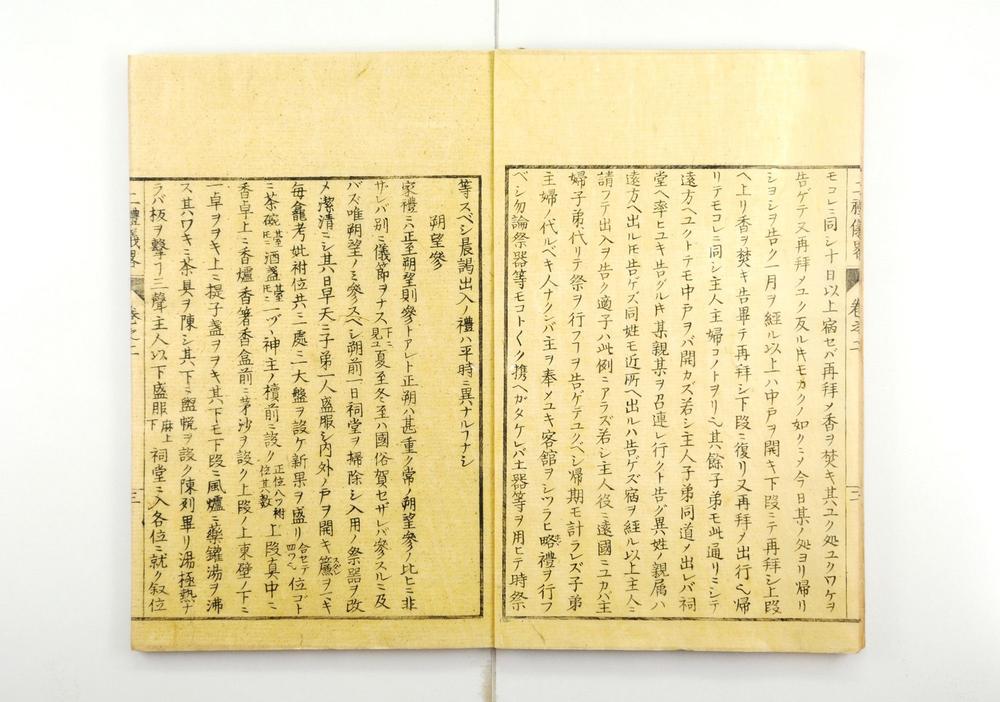 モコレニ同シ十日以上宿セバ再拜メ香ヲ焚キ其ユク処ユクワケヲ
告ゲテ又再拜メユク反ルキモカクノ如クニメ今日某ノ処ヨリ帰リ
ショシヲ告ク一月ヲ經ル以上ハ中戸ヲ開キ下段ニテ再拜シ上段
ヘ上リ香ヲ焚キ告畢テ再拜シ下段ニ復リ又再拜メ出行ク帰
リテモコレニ同シ主人主婦コノトヲリ其餘子弟モ此通リニシテ
遠方ヘユクトテモ中戸ヲバ開カズ若シ主人子弟同道メ出レバ祠
堂ヘ率ヒユキ告グル𪜈某親某ヲ召連レ行クト告グ異姓ノ親属ハ
遠方ヘ出ル𪜈告ゲズ同姓モ近所ヘ出ルハ告ゲズ宿ヲ經ル以上主人ニ
請フテ出入ヲ告ク適子ハ此例ニアラズ若シ主人役ニ遠國ニユカバ主
婦子弟代リテ祭ヲ行フヿヲ告ゲテユクベシ帰期モ計ラレズ子弟
主婦ノ代ルベキ人ナクンバ主ヲ奉メユキ客舘ヲシツラヒ略禮ヲ行フ
ベシ勿論祭器等モコトゴトク携ヘガタケレバ土器等ヲ用ヒテ時祭
二禮儀畧 巻之二 三
等スベシ晨謁出入ノ禮ハ平時ニ異ナルヿナシ
朔望參
家禮ニハ正至朔望則參トアレト正朔ハ甚重ク常ノ朔望參ノ比ヒニ非
ザレバ別ニ儀節ヲナス下ニ見ユ夏至冬至ハ國俗賀セザレバ參スルニ及
バズ唯朔望ノミ參スベシ朔前一日祠堂ヲ掃除シ入用ノ祭器ヲ改
メ潔清ニシ其日早天ニ子弟一人盛服シ内外ノ戸ヲ開キ簾ヲマキ
毎龕考妣祔位共ニ一處ニ一大盤ヲ設ケ新果ヲ盛リ合セテ四ツ位ゴト
ニ茶碗臺𪜈ニ酒盞臺𪜈ニ一ヅヽ神主ノ櫝前ニ設ク正位八ツ祔位其数上段真中ニ
香卓上ニ香爐香箸香盒前ニ茅沙ヲ設ク上段ノ上東壁ノ下ニ
一卓ヲヲキ上ニ提子盞ヲヲキ其下モ下段ニ風爐ニ藥鑵湯ヲ沸
ス其ワキニ茶具ヲ陳シ其下ニ盥帨ヲ設ク陳列畢リ湯極熱ナ
ラバ板ヲ擊ツヿ三聲主人以下盛服麻上下祠堂ニ入各位ニ就ク叙位
二禮儀畧 巻之二 三